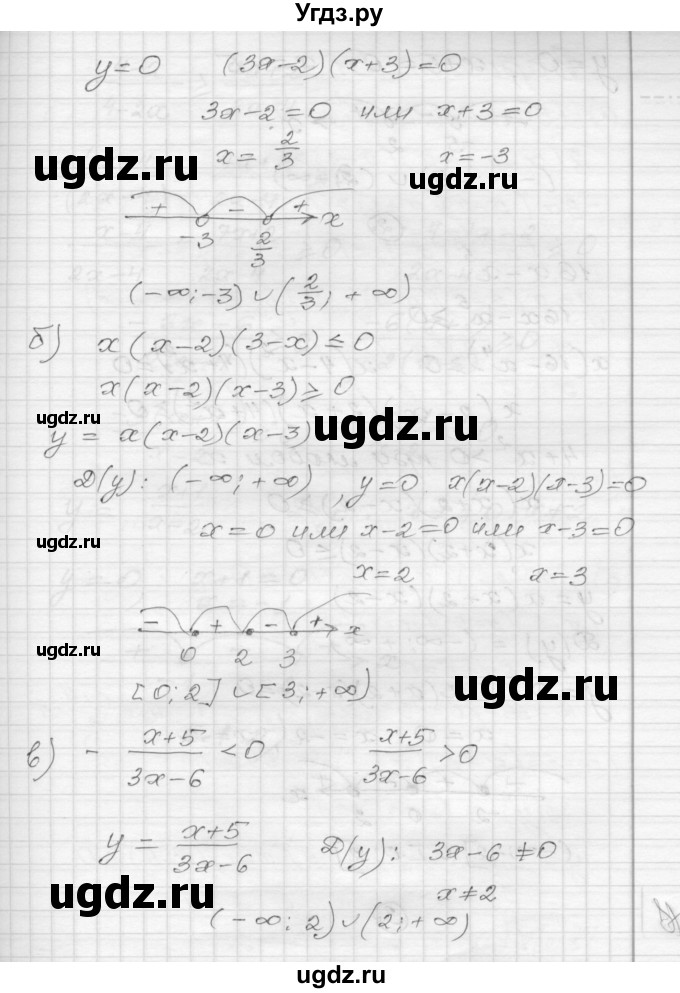 Угдз.ру
y=0 (3x-2)(x+3)=0
3x-2=0 или x+3=0
x= 2/3 x=-3
ugdz.ru
ugdz.ru
+ - + x
-3 2/3
(-∞;-3)∪(2/3; +∞)
б) x(x-2)(3-x)≤0
x(x-2)(x-3)≥0
ugdz.ru
ugdz.ru
y= x(x-2)(x-3)
D(y): (-∞;+∞), y=0 x(x-2)(x-3)=0
x=0 или x-2=0 или x-3=0
ugdz.ru
x=2 x=3
- + - + x
ugdz.ru
0 2 3
[0;2]∪[3;+∞)
ugdz.ru
в) - (x+5)/(3x-6) <0 (x+5)/(3x-6) >0
y= (x+5)/(3x-6) D(y): 3x-6≠0
ugdz.ru
x≠2
(-∞;2)∪(2;+∞)
ugdz.ru
ugdz.ru